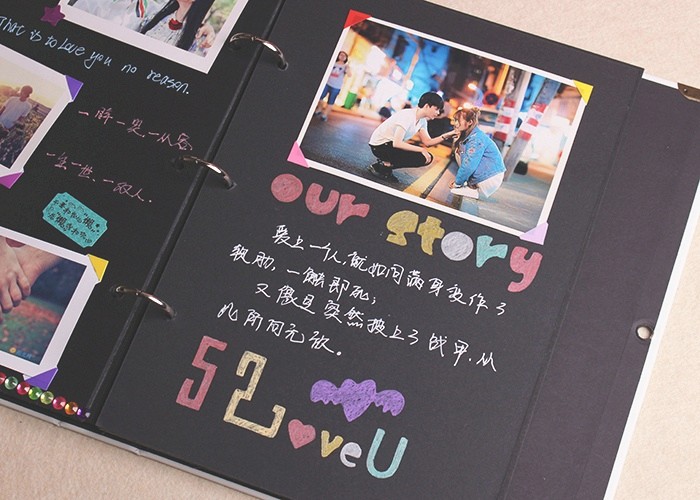 That is to love you no reason.
一生一世、一双人.
our story
爱上一人,就如同满身变作了
软肋,一触即死;
又像是突然披上了战甲.从
此所向无敌。
52♥oveU